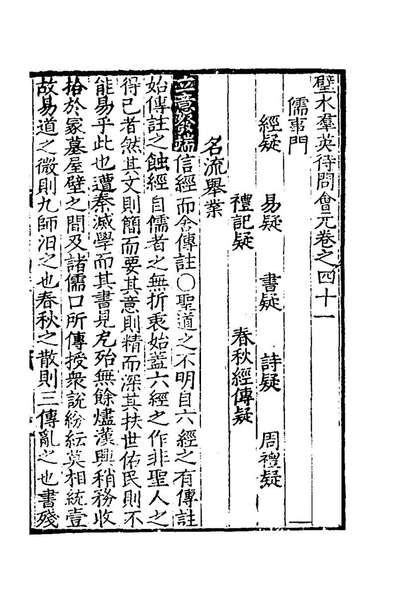 璧水羣英待問會元卷之四十一
儒事門
經疑　易疑　書疑　詩疑　周禮疑
禮記疑　春秋經傳疑
名流舉業
立意發端信經而舍傳註〇聖道之不明自六經之有傳註
始傳註之蝕經自儒者之無折衷始蓋六經之作非聖人之
得已者然其文則簡而要其意則精而深其扶世佑民則不
能易乎此也遭秦滅學而其書見厄殆無餘燼漢興稍務收
拾於冢墓屋壁之間及諸儒口所傳授衆說紛紜莫相統壹
故易道之微則九師汨之也春秋之散則三傳亂之也書殘